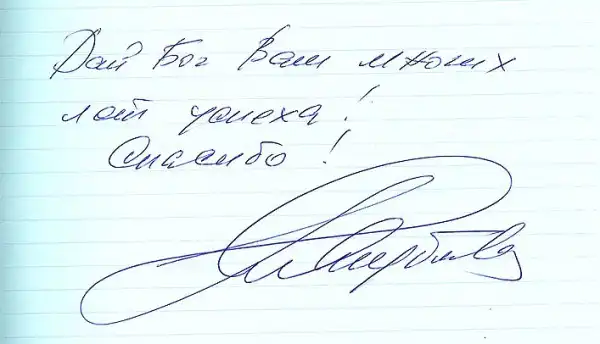 Дай Бог Вам многих
лет успеха!
Спасибо!